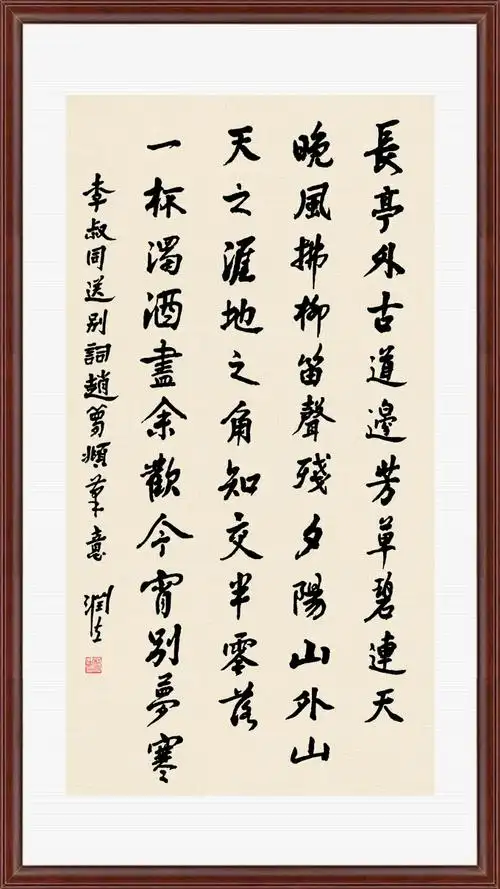 長亭外古道邊芳草碧連天
晚風拂柳笛聲殘夕陽山外山
天之涯地之角知交半零落
一杯濁酒盡余歡今宵別夢寒
李叔同送別詞趙孟頫筆意